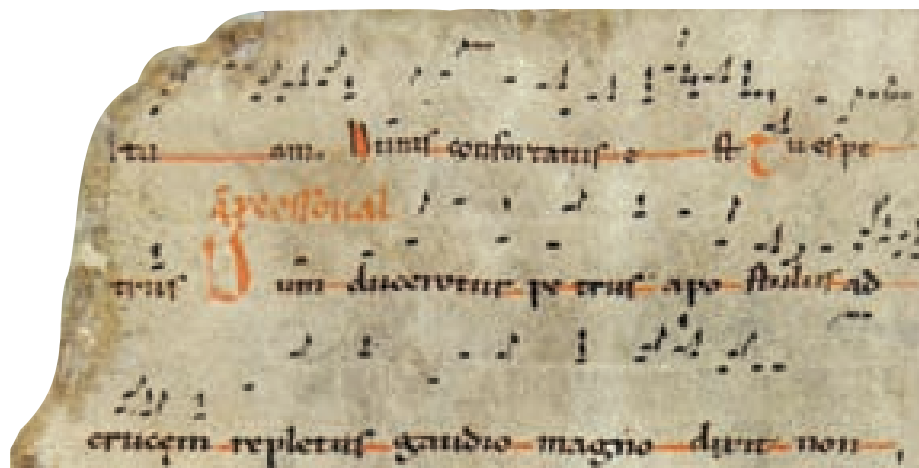 tu am. Nimis confortatus e st Tu es pe
trus Cum duceretur petrus apo stolus ad
crucem repletus gaudio magno dixit non